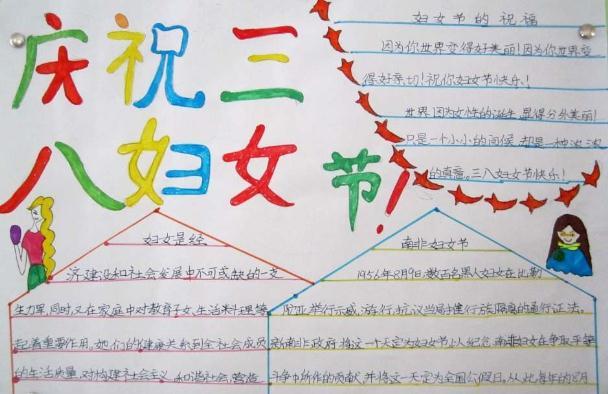 庆祝三
八妇女节!
妇女节的祝福
因为你世界变得好美丽!因为你世界变
得好亲切!祝你妇女节快乐!
世界因为女性的诞生显得分外美丽!
只是一个小小的问候,却是一种浓浓
的真蕴。三八妇女节快乐!
妇女是经
济建设和社会发展中不可或缺的一支
生力军,同时,又在家庭中对教育子女、生活料理等
起着重要作用,她们的健康关系到全社会成员
的生活质量,对构建社会主义和谐社会,营造
南非妇女节
1956年8月9日,数百名黑人妇女在比勒
陀亚举行示威游行,抗议当局推行族隔离的通行证法。
新南非政府将这一个天定为妇女节以人纪念南非妇女在争取平等
斗争中所作的贡献,并将这一天定为全国公假日。从此每年的8月